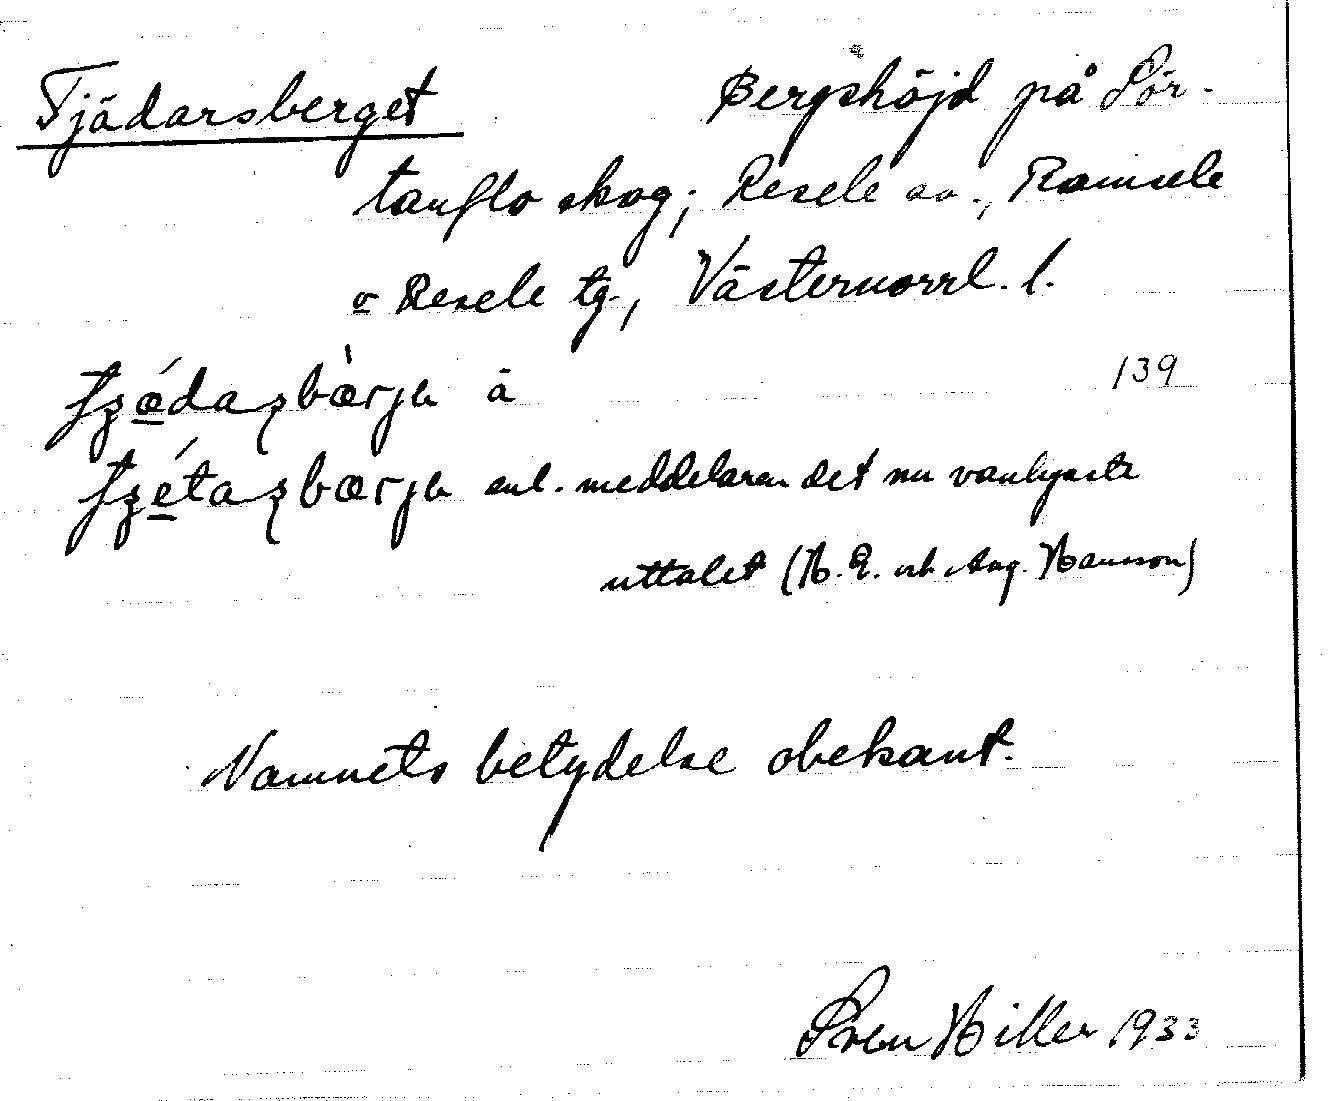 Tjädarsberget Bergshöjd på Sör-
tanflo skog; Resele sn., Ramsele
o Resele tg., Västernorrl. l.
ä 139
enl. meddelaren det nu vanligaste
uttalet (H. E. och Aug. Hansson)
Namnets betydelse obekant.
Sven Hiller 1933